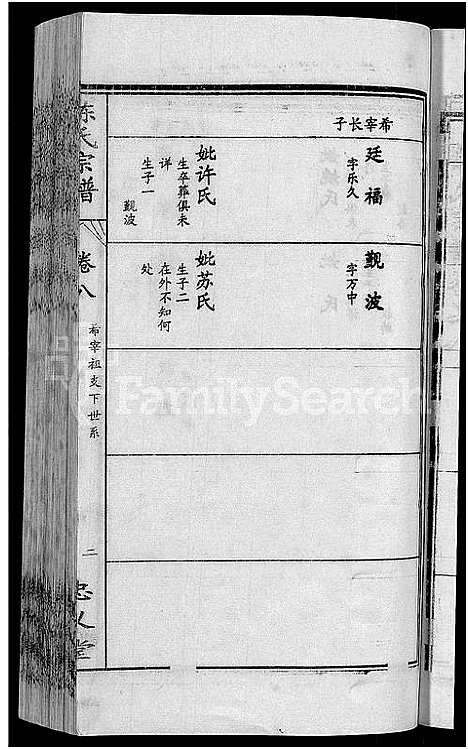 希宰长子
廷福
字乐久
妣许氏
生卒葬俱未
详
生子一 觐波
觐波
字万中
妣苏氏
生子二
在外不知何
处
陈氏宗谱
卷八
希宰祖支下世系
二
忠义堂
FamilySearch